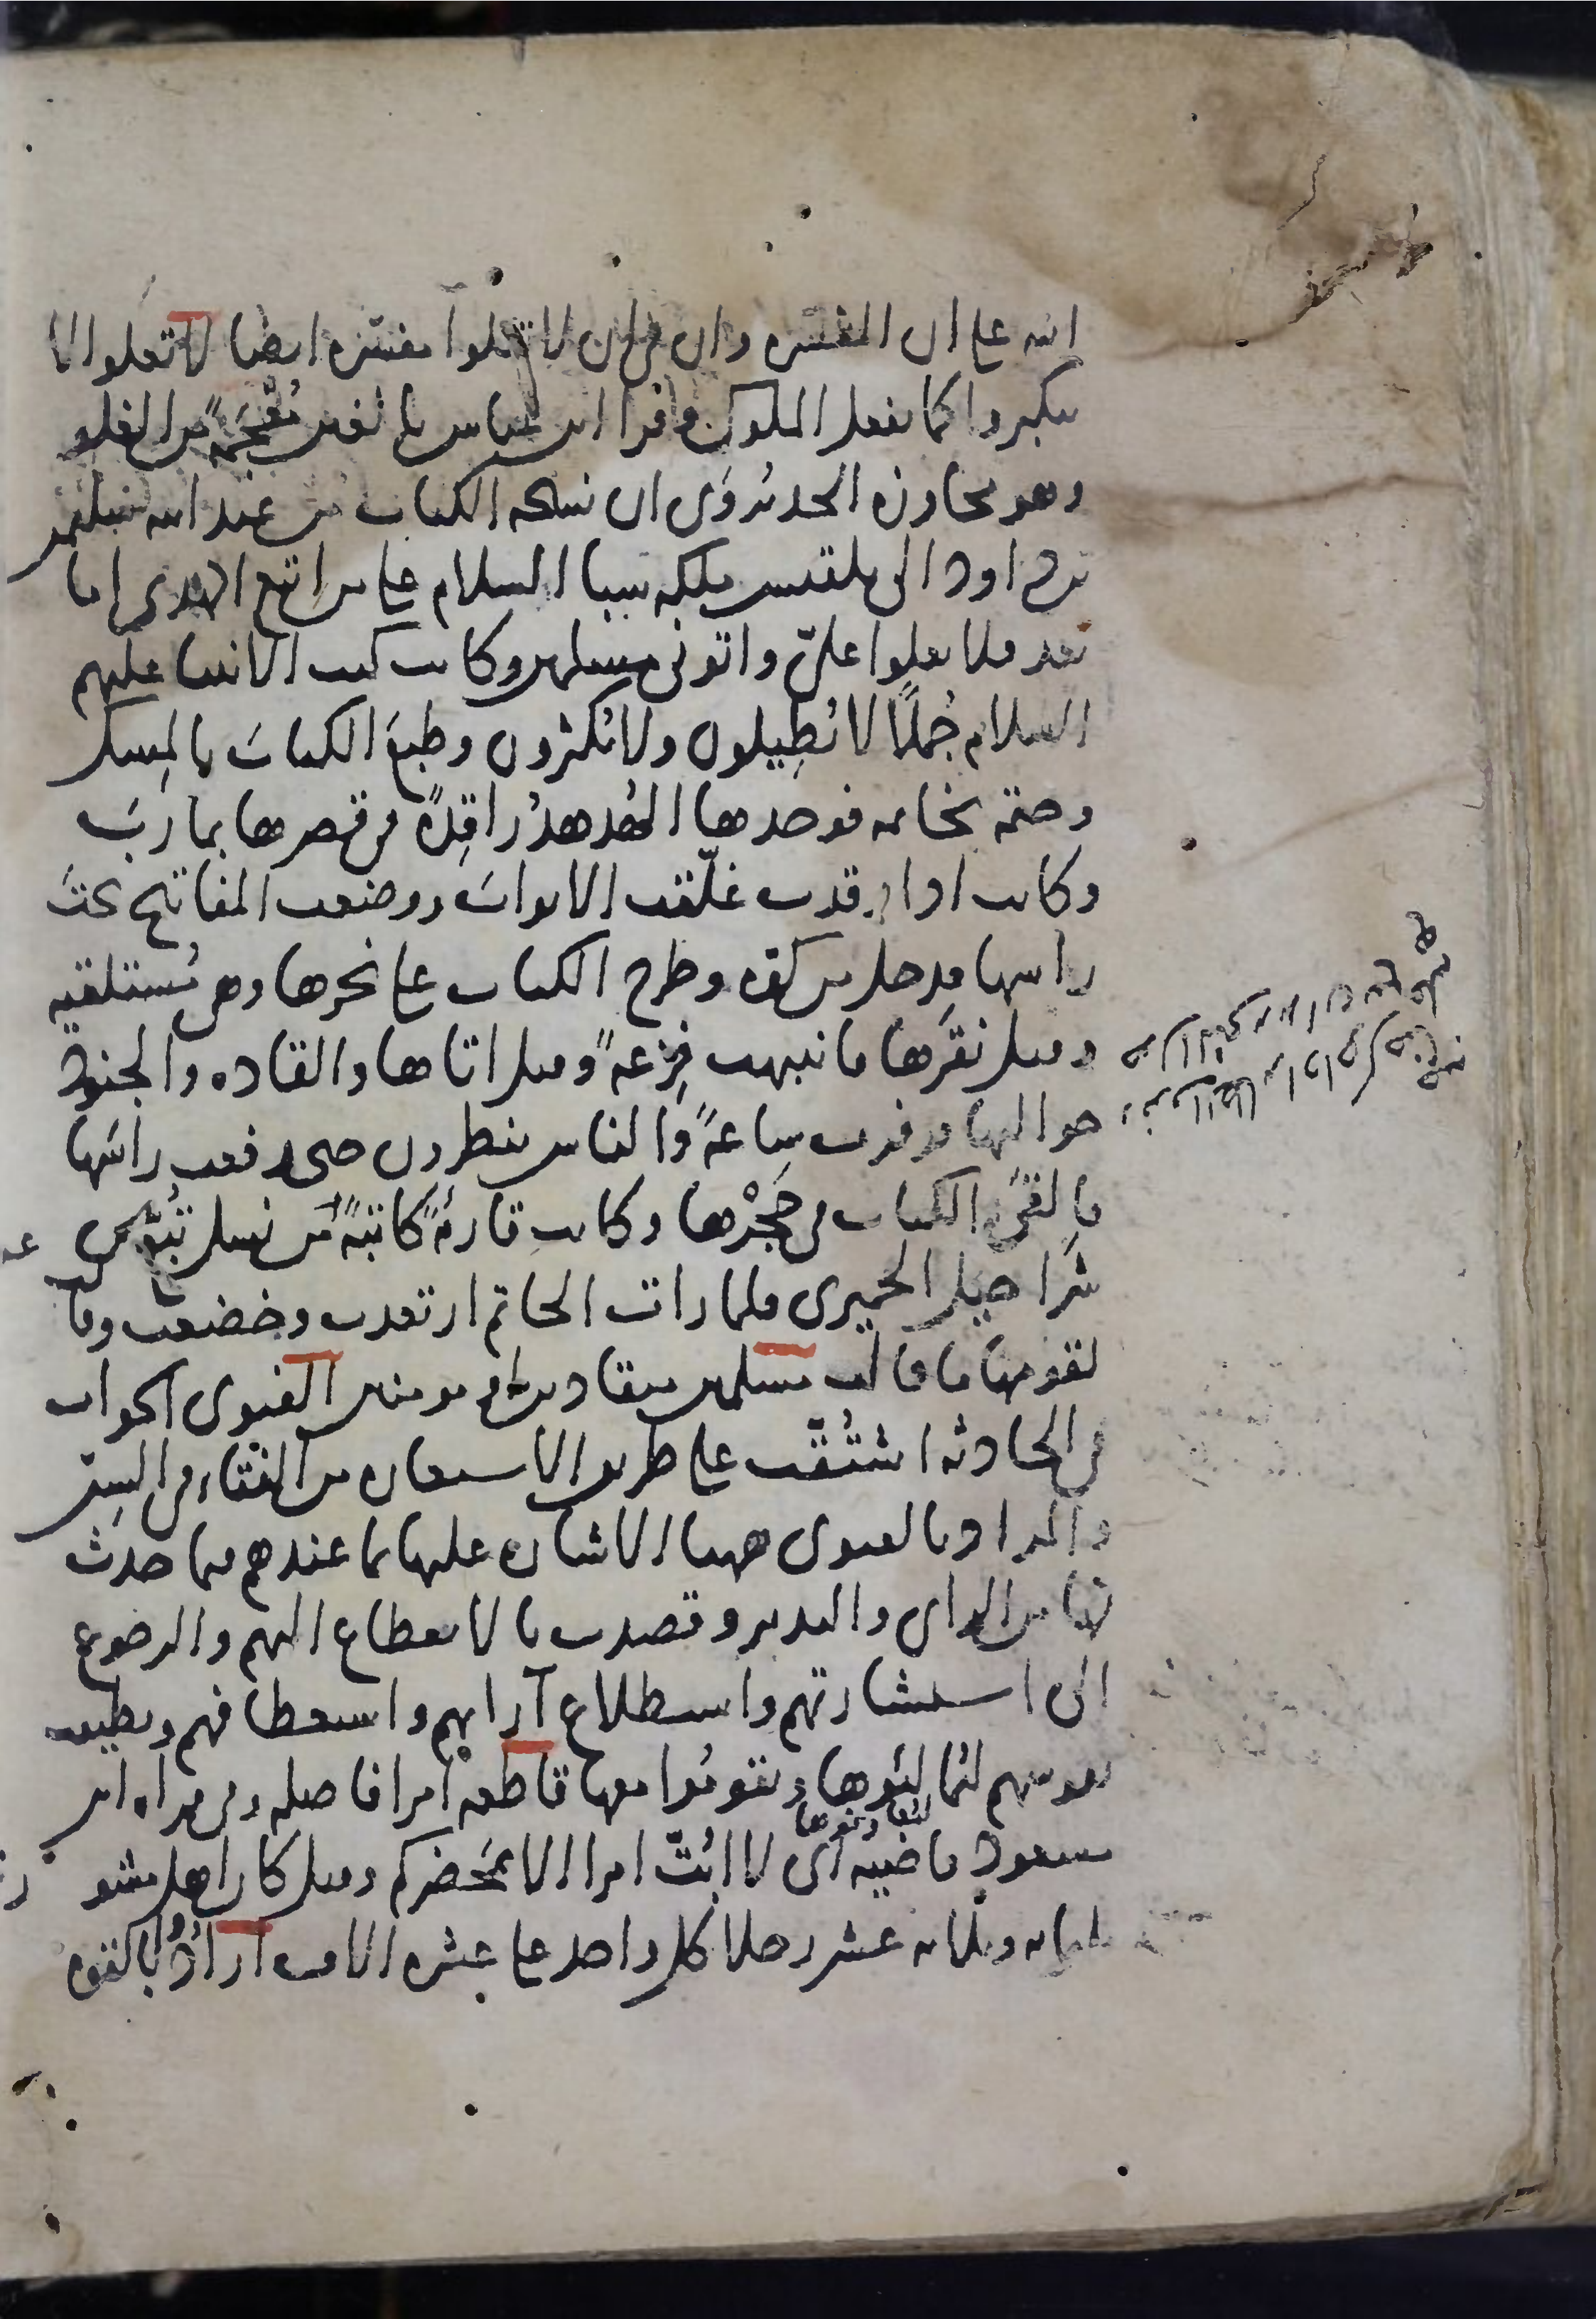 انه على ان المفسره وان فى ان لا تعلوا مفسّره ايضا لا تعلوا لا
تتكبروا كما يفعل الملوك وقرا ابن عباس بالغين مُعْجَمَةً من الغلو
وهو مجاوزه الحد يُروَى ان نسخه الكتاب من عند الله سليمن
بن داود الى بلقيس ملكه سبا السلام على من اتبع الهدى اما
بعد فلا تعلوا علىّ واتونى مسلمين وكانت كتب الانبيا عليهم
السلام جُملًا لا يُطِيلون ولا يُكثرون وطبعَ الكتابَ بالمِسك
وختمه بخاتمه فوجدها الهُدهدُ راقِدةً فى قصرها بمارَبَ
وكانت اذا رقدت غلّقت الابوابَ ووضعت المفاتيح تحتَ
راسها فدخل من كوه وطرح الكتاب على نحرها وهى مُستلقيه
وقيل نقَرها فانتبهت فزِعةً وقيل اتاها والقاده والجنود
حواليها فرفرف ساعةً والناس ينظرون حتى رفعت راسَها
فالقى الكتاب فى حَجْرها وكانت قارئةً كاتبةً من نسل تُبّع بن
شَراحيل الحميرى فلما رات الخاتم ارتعدت وخضعت وقا
لقومها ما قالت مسلمين منقادين او مومنين الفتوى الجواب
فى الحادثه اشتُقّت على طريق الاستعاره من الفتاء فى السِنّ
والمراد بالفتوى ههنا الاشاره عليها بما عندهم فيما حدث
لها من الراى والتدبير وقصدت بالانقطاع اليهم والرجوع
الى استشارتهم واستطلاع آرايهم واستعطافهم وتطييب
نفوسهم ليُمالِئوها ويقومُوا معها قاطعه امرا فاصله وفى قراه ابن
مسعود قاضيه اى لا ابُتّ امرا الا بمَحضركم وقيل كان اهل مشو
ثلثمايه وثلاثه عشر رجلا كل واحد على عشره الاف ارادُوا بالقوه